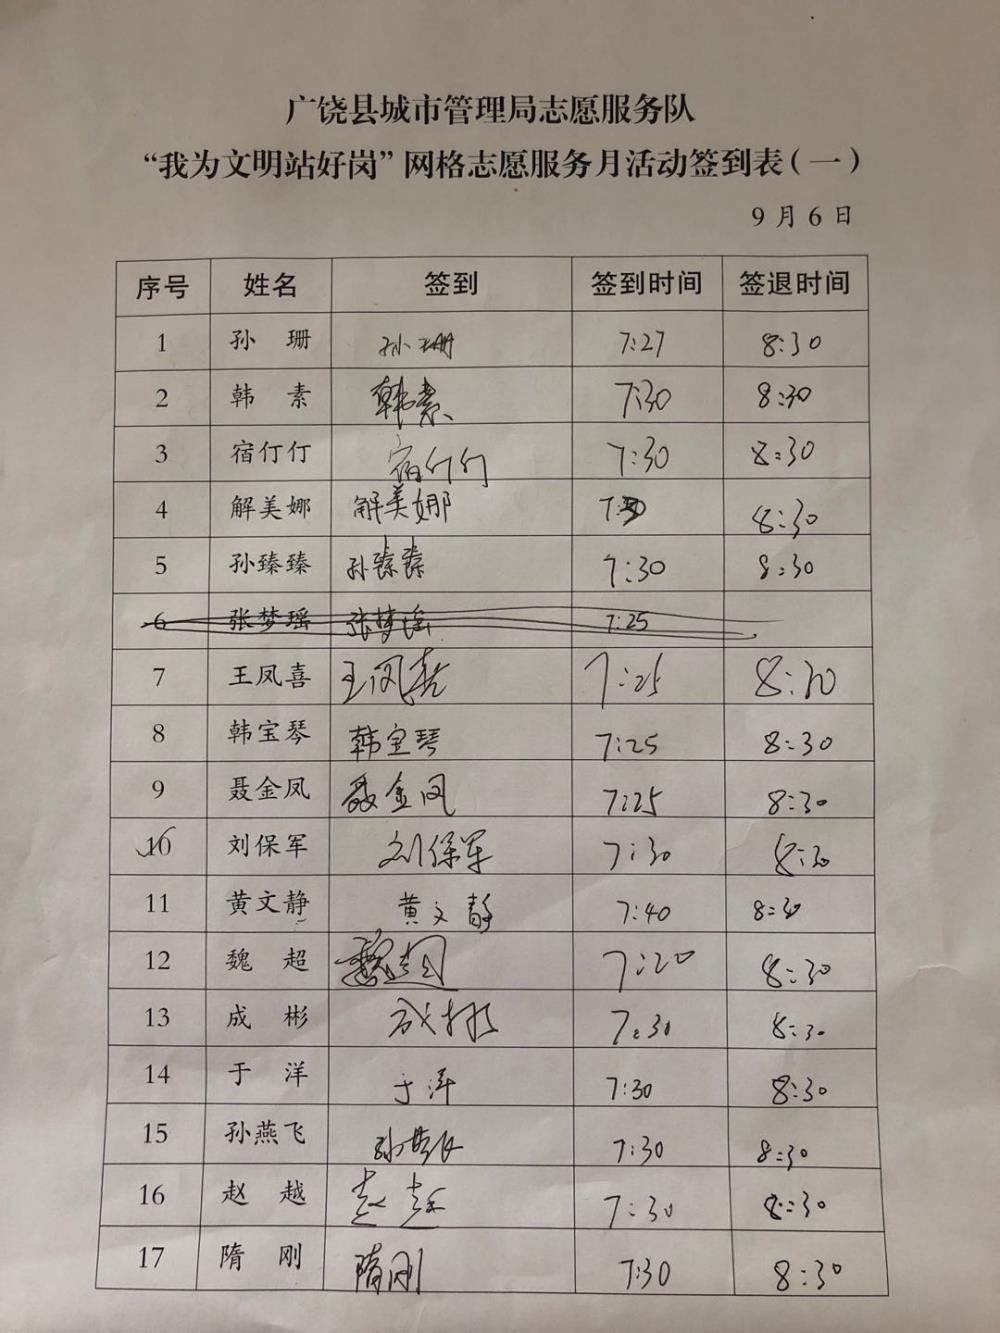 广饶县城市管理局志愿服务队
“我为文明站好岗”网格志愿服务月活动签到表（一）
9月6日
序号 姓名 签到 签到时间 签退时间
1 孙 珊 孙珊 7:27 8:30
2 韩 素 韩素 7:30 8:30
3 宿仃仃 宿仃仃 7:30 8:30
4 解美娜 解美娜 7:30 8:30
5 孙臻臻 孙臻臻 7:30 8:30
6 张梦瑶 张梦瑶 7:25
7 王凤喜 王凤喜 7:25 8:30
8 韩宝琴 韩宝琴 7:25 8:30
9 聂金凤 聂金凤 7:25 8:30
10 刘保军 刘保军 7:30 8:30
11 黄文静 黄文静 7:40 8:30
12 魏 超 魏超 7:20 8:30
13 成 彬 成彬 7:30 8:30
14 于 洋 于洋 7:30 8:30
15 孙燕飞 孙燕飞 7:30 8:30
16 赵 越 赵越 7:30 8:30
17 隋 刚 隋刚 7:30 8:30